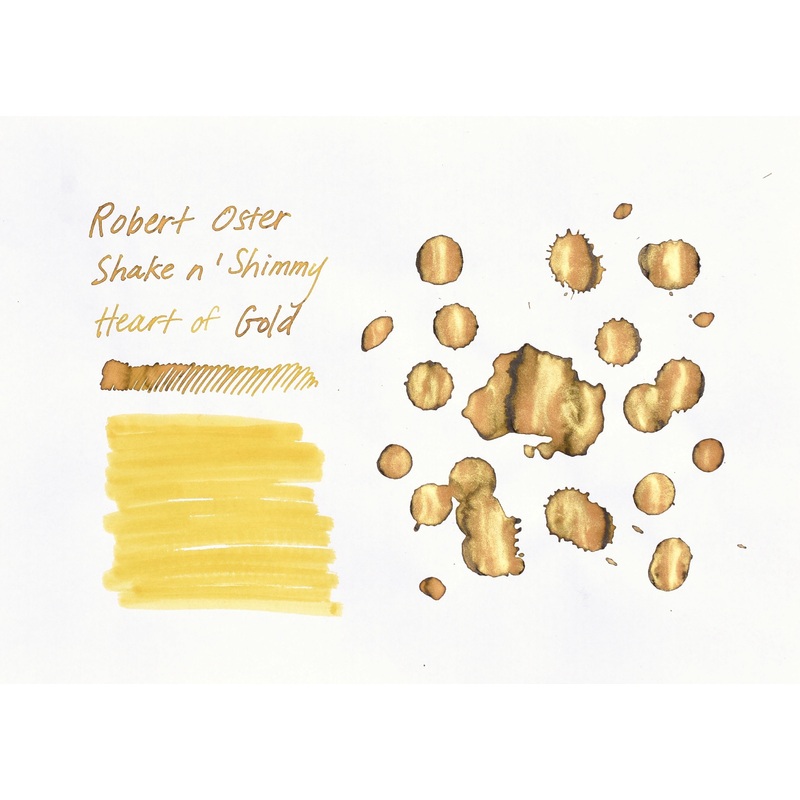 Robert Oster
Shake n' Shimmy
Heart of Gold